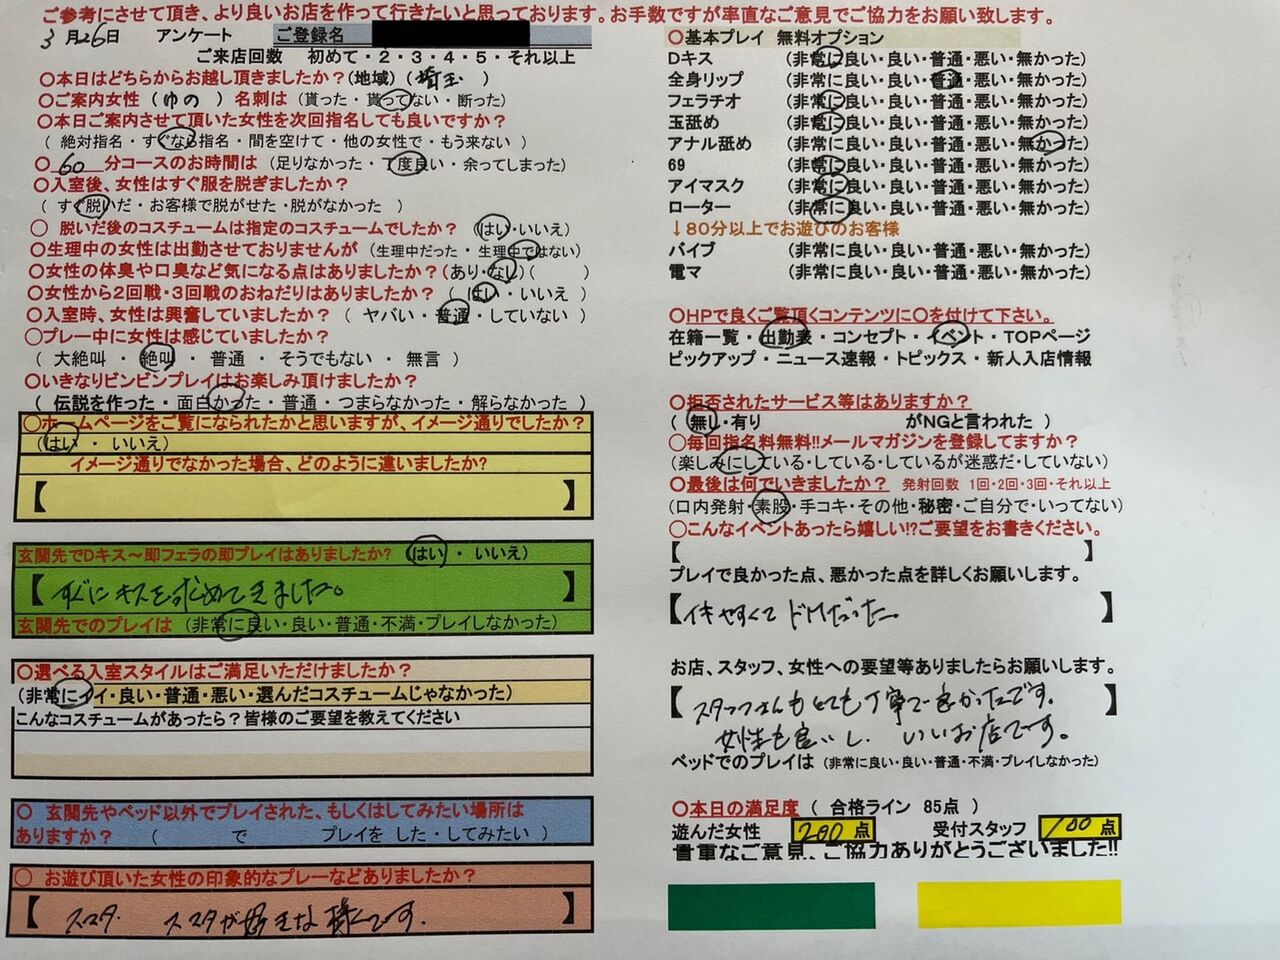 ご参考にさせて頂き、より良いお店を作って行きたいと思っております。お手数ですが率直なご意見でご協力をお願い致します。
3月26日 アンケート ご登録名
ご来店回数 初めて・2・3・4・5・それ以上
〇本日はどちらからお越し頂きましたか?(地域)(埼玉 )
〇ご案内女性 (ゆの )名刺は (貰った・貰ってない・断った)
〇本日ご案内させて頂いた女性を次回指名しても良いですか?
( 絶対指名・すぐなら指名・間を空けて・他の女性で・もう来ない )
〇 60 分コースのお時間は (足りなかった・丁度良い・余ってしまった)
〇入室後、女性はすぐ服を脱ぎましたか?
( すぐ脱いだ・お客様で脱がせた・脱がなかった )
〇 脱いだ後のコスチュームは指定のコスチュームでしたか? (はい・いいえ)
〇生理中の女性は出勤させておりませんが (生理中だった・生理中ではない)
〇女性の体臭や口臭など気になる点はありましたか?(あり・なし)( )
〇女性から2回戦・3回戦のおねだりはありましたか? ( はい・いいえ )
〇入室時、女性は興奮していましたか? ( ヤバい・普通・していない )
〇プレー中に女性は感じていましたか?
( 大絶叫・絶叫・普通・そうでもない・無言 )
〇いきなりビンビンプレイはお楽しみ頂けましたか?
( 伝説を作った・面白かった・普通・つまらなかった・解らなかった )
〇ホームページをご覧になられたかと思いますが、イメージ通りでしたか?
(はい ・ いいえ)
イメージ通りでなかった場合、どのように違いましたか?
【 】
玄関先でDキス～即フェラの即プレイはありましたか? (はい ・ いいえ)
【 すぐにキスを求めてきました。 】
玄関先でのプレイは (非常に良い・良い・普通・不満・プレイしなかった)
〇選べる入室スタイルはご満足いただけましたか?
(非常にイイ・良い・普通・悪い・選んだコスチュームじゃなかった)
こんなコスチュームがあったら?皆様のご要望を教えてください
〇 玄関先やベッド以外でプレイされた、もしくはしてみたい場所は
ありますか? ( で プレイを した・してみたい )
〇 お遊び頂いた女性の印象的なプレーなどありましたか?
【 スマタ. スマタが好きな様です. 】
〇基本プレイ 無料オプション
Dキス (非常に良い・良い・普通・悪い・無かった)
全身リップ (非常に良い・良い・普通・悪い・無かった)
フェラチオ (非常に良い・良い・普通・悪い・無かった)
玉舐め (非常に良い・良い・普通・悪い・無かった)
アナル舐め (非常に良い・良い・普通・悪い・無かった)
69 (非常に良い・良い・普通・悪い・無かった)
アイマスク (非常に良い・良い・普通・悪い・無かった)
ローター (非常に良い・良い・普通・悪い・無かった)
↓80分以上でお遊びのお客様
バイブ (非常に良い・良い・普通・悪い・無かった)
電マ (非常に良い・良い・普通・悪い・無かった)
〇HPで良くご覧頂くコンテンツに〇を付けて下さい。
在籍一覧・出勤表・コンセプト・イベント・TOPページ
ピックアップ・ニュース速報・トピックス・新人入店情報
〇拒否されたサービス等はありますか?
( 無し・有り がNGと言われた )
〇毎回指名料無料!!メールマガジンを登録してますか?
(楽しみにしている・している・しているが迷惑だ・していない)
〇最後は何でいきましたか? 発射回数 1回・2回・3回・それ以上
(口内発射・素股・手コキ・その他・秘密・ご自分で・いってない)
〇こんなイベントあったら嬉しい!?ご要望をお書きください。
【 】
プレイで良かった点、悪かった点を詳しくお願いします。
【イキやすくてドMだった。 】
お店、スタッフ、女性への要望等ありましたらお願いします。
【 スタッフさんもとても丁寧で良かったです. 】
女性も良いし. いいお店です。
ベッドでのプレイは (非常に良い・良い・普通・不満・プレイしなかった)
〇本日の満足度 ( 合格ライン 85点 )
遊んだ女性 200 点 受付スタッフ 100 点
貴重なご意見、ご協力ありがとうございました!!